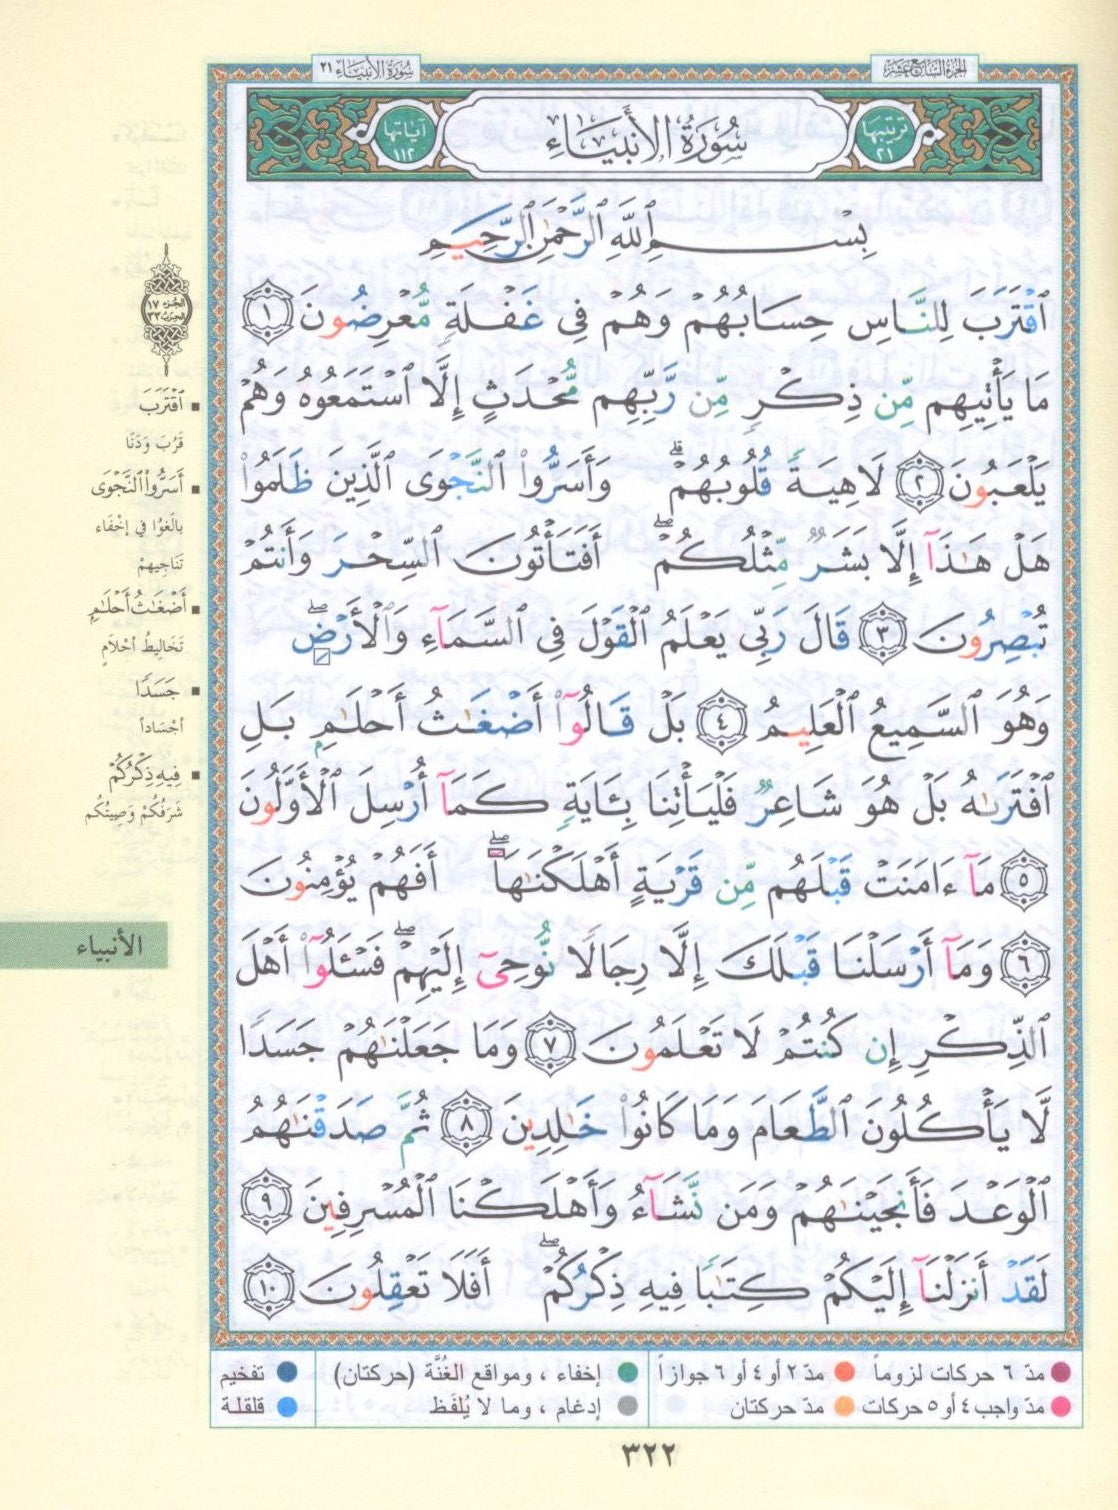 الجزء السابع عشر
سورة الأنبياء ٢١
ترتيبها ٢١
سُورَةُ الأَنبِيَاءِ
آياتها ١١٢
بِسْمِ ٱللَّهِ ٱلرَّحْمَٰنِ ٱلرَّحِيمِ
ٱقْتَرَبَ لِلنَّاسِ حِسَابُهُمْ وَهُمْ فِى غَفْلَةٍ مُّعْرِضُونَ ١
مَا يَأْتِيهِم مِّن ذِكْرٍ مِّن رَّبِّهِم مُّحْدَثٍ إِلَّا ٱسْتَمَعُوهُ وَهُمْ
يَلْعَبُونَ ٢ لَاهِيَةً قُلُوبُهُمْ ۗ وَأَسَرُّوا۟ ٱلنَّجْوَى ٱلَّذِينَ ظَلَمُوا۟
هَلْ هَٰذَآ إِلَّا بَشَرٌ مِّثْلُكُمْ ۖ أَفَتَأْتُونَ ٱلسِّحْرَ وَأَنتُمْ
تُبْصِرُونَ ٣ قَالَ رَبِّى يَعْلَمُ ٱلْقَوْلَ فِى ٱلسَّمَآءِ وَٱلْأَرْضِ ۖ
وَهُوَ ٱلسَّمِيعُ ٱلْعَلِيمُ ٤ بَلْ قَالُوٓا۟ أَضْغَٰثُ أَحْلَٰمٍ بَلِ
ٱفْتَرَىٰهُ بَلْ هُوَ شَاعِرٌ فَلْيَأْتِنَا بِـَٔايَةٍ كَمَآ أُرْسِلَ ٱلْأَوَّلُونَ
٥ مَآ ءَامَنَتْ قَبْلَهُم مِّن قَرْيَةٍ أَهْلَكْنَٰهَآ ۖ أَفَهُمْ يُؤْمِنُونَ
٦ وَمَآ أَرْسَلْنَا قَبْلَكَ إِلَّا رِجَالًا نُّوحِىٓ إِلَيْهِمْ ۖ فَسْـَٔلُوٓا۟ أَهْلَ
ٱلذِّكْرِ إِن كُنتُمْ لَا تَعْلَمُونَ ٧ وَمَا جَعَلْنَٰهُمْ جَسَدًا
لَّا يَأْكُلُونَ ٱلطَّعَامَ وَمَا كَانُوا۟ خَٰلِدِينَ ٨ ثُمَّ صَدَقْنَٰهُمُ
ٱلْوَعْدَ فَأَنجَيْنَٰهُمْ وَمَن نَّشَآءُ وَأَهْلَكْنَا ٱلْمُسْرِفِينَ ٩
لَقَدْ أَنزَلْنَآ إِلَيْكُمْ كِتَٰبًا فِيهِ ذِكْرُكُمْ ۖ أَفَلَا تَعْقِلُونَ ١٠
الجزء ١٧
الحزب ٣٣
ٱقْتَرَبَ
قَرُبَ وَدَنَا
أَسَرُّوا۟ ٱلنَّجْوَى
بالَغوُا في إخْفَاء
تَنَاجِيهِمْ
أَضْغَٰثُ أَحْلَٰمٍ
تَخَالِيطُ أحْلامٍ
جَسَدًا
أجْسَاداً
فِيهِ ذِكْرُكُمْ
شَرَفُكُمْ وَصِيتُكُم
الأنبياء
مدّ ٦ حركات لزوماً مدّ ٢ أو ٤ أو ٦ جوازاً إخفاء ، ومواقع الغُنَّة (حركتان) تفخيم
مدّ واجب ٤ أو ٥ حركات مدّ حركتان إدغام ، وما لا يُلفَظ قلقلة
٣٢٢